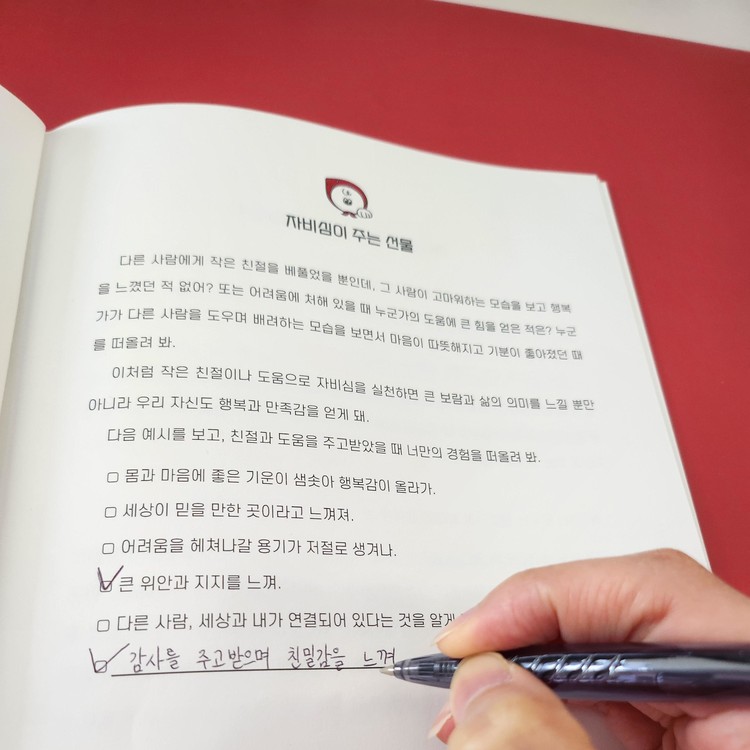 자비심이 주는 선물
다른 사람에게 작은 친절을 베풀었을 뿐인데, 그 사람이 고마워하는 모습을 보고 행복
을 느꼈던 적 없어? 또는 어려움에 처해 있을 때 누군가의 도움에 큰 힘을 얻은 적은? 누군
가가 다른 사람을 도우며 배려하는 모습을 보면서 마음이 따뜻해지고 기분이 좋아졌던 때
를 떠올려 봐.
이처럼 작은 친절이나 도움으로 자비심을 실천하면 큰 보람과 삶의 의미를 느낄 뿐만
아니라 우리 자신도 행복과 만족감을 얻게 돼.
다음 예시를 보고, 친절과 도움을 주고받았을 때 너만의 경험을 떠올려 봐.
몸과 마음에 좋은 기운이 샘솟아 행복감이 올라가.
세상이 믿을 만한 곳이라고 느껴져.
어려움을 헤쳐나갈 용기가 저절로 생겨나.
큰 위안과 지지를 느껴.
다른 사람, 세상과 내가 연결되어 있다는 것을 알게
감사를 주고받으며 친밀감을 느껴